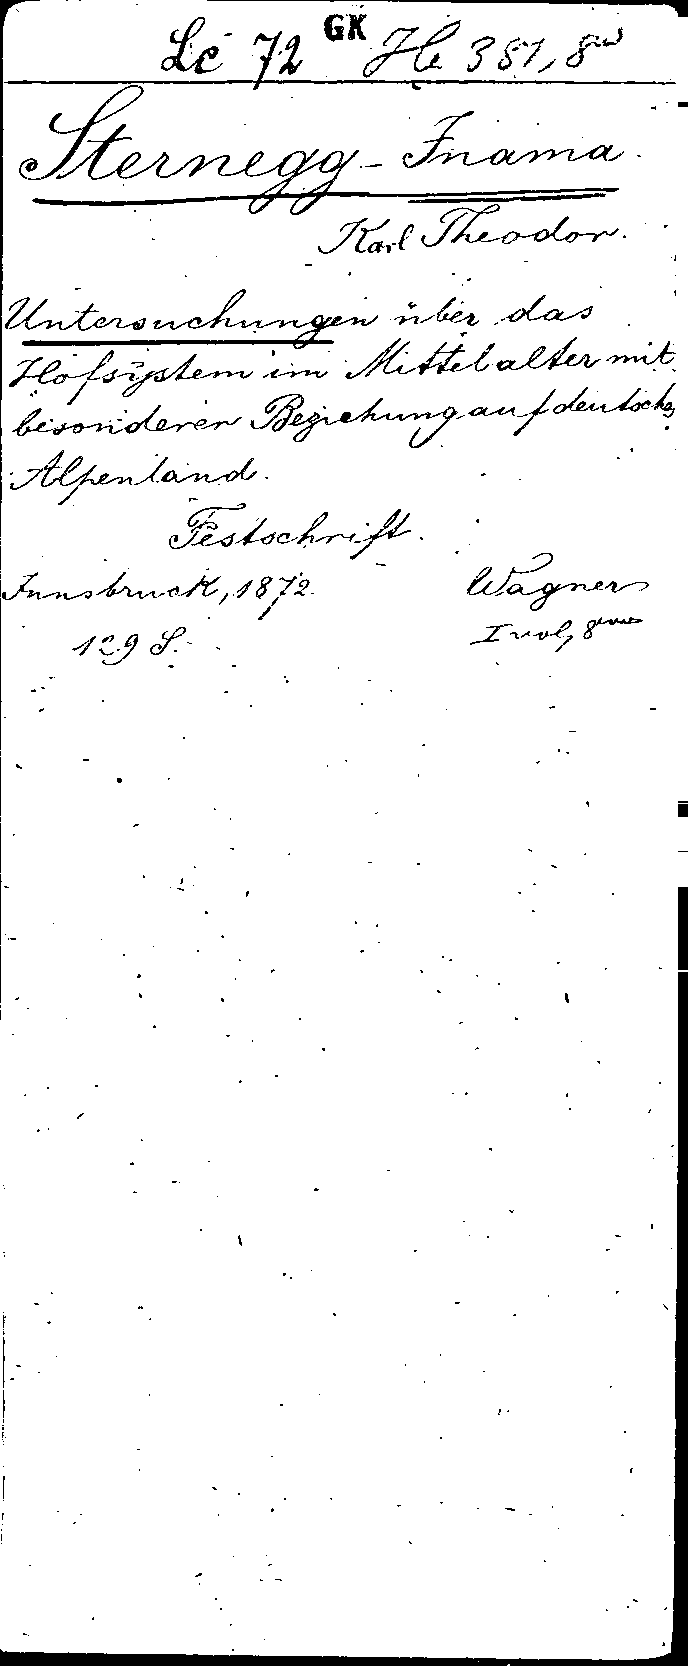 Lc 72 GK He 381, 8vo
Sternegg - Inama.
Karl Theodor.
Untersuchungen über das
Hofsystem im Mittelalter mit
besonderer Beziehung auf deutsches
Alpenland.
Festschrift.
Innsbruck, 1872. Wagner
129 S. I vol, 8vo